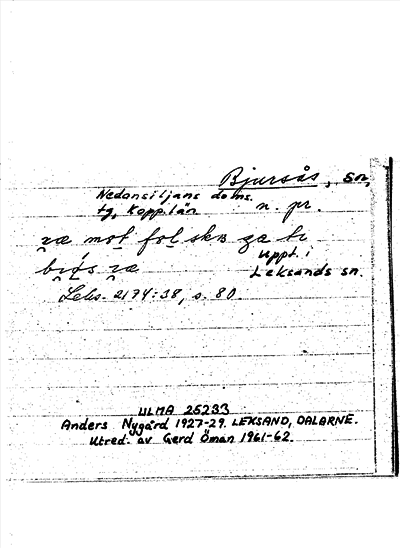 Bjursås, sn,
Nedansiljans doms.
tg, Kopp.län n. pr.
uppt. i
Leksands sn.
Leks. 2174:38, s. 80.
ULMA 25233
Anders Nygård 1927-29. LEKSAND, DALARNE.
Utred. av Gerd Öman 1961-62.